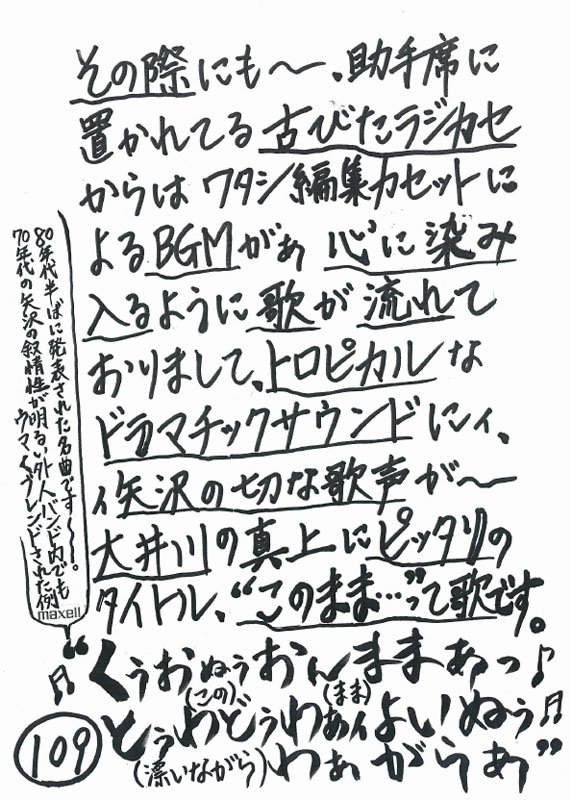 その際にも〜、助手席に
置かれてる古びたラジカセ
からは ワタシ編集カセットに
よるBGMがぁ 心に染み
入るように歌が流れて
おりまして、トロピカルな
ドラマチックサウンドにィ、
ィ矢沢の切な歌声が〜
大井川の真上にピッタリの
タイトル、“このまま…”って歌です。
“くぅおぬぅおんままぁっ♪
(この) (まま)
とぅわどぅわぁィよいぬぅ♬
(漂いながら)わぁがらぁ”
80年代半ばに発表された名曲です〜。
70年代の矢沢の叙情性が明るい外人バンド内でも
ウマくブレンドされた例
maxell
109